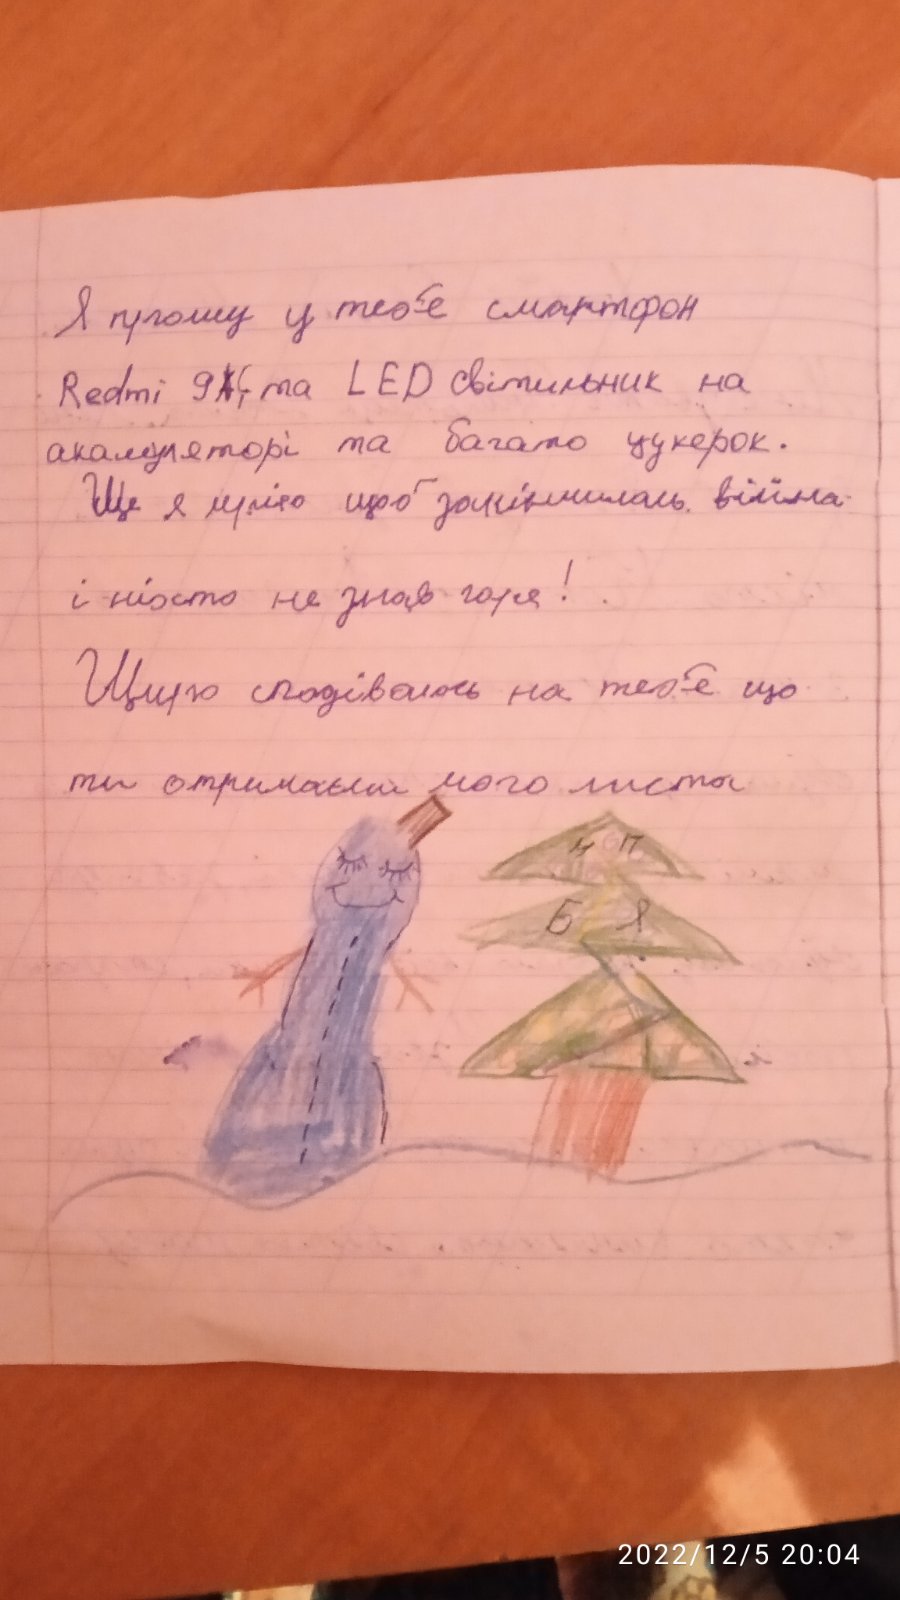 Я прошу у тебе смартфон
Redmi та LED світильник на
акамуляторі та багато цукерок.
Ще я мрію щоб закінчилась війна
і ніхто не знав горя!
Щиро сподіваюсь на тебе що
ти отримаєш мого листа
Н П
Б Я
2022/12/5 20:04